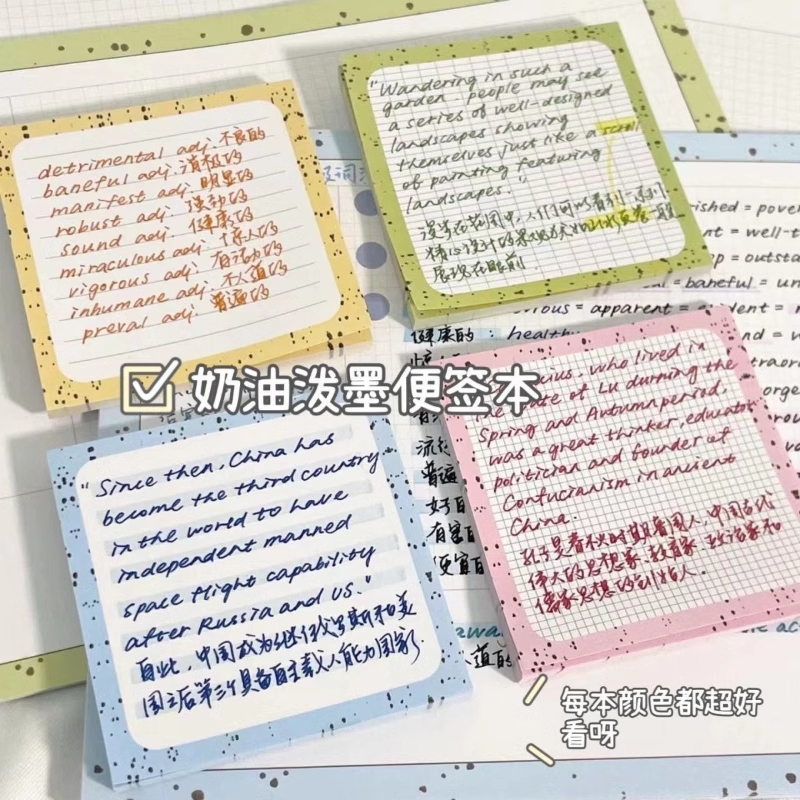 detrimental adj. 不良的
baneful adj. 消极的
manifest adj. 明显的
robust adj. 强劲的
sound adj. 健康的
miraculous adj. 惊人的
vigorous adj. 有活力的
inhumane adj. 不人道的
preval adj. 普遍的
"Wandering in such a
garden. people may see
a series of well-designed
landscapes showing
themselves just like a scroll
of painting featuring
landscapes."
漫步在花园中,人们可以看到一系列
精心设计的景观犹如山水画卷一般
展现在眼前.
奶油泼墨便签本
"Since then, China has
become the third country
in the world to have
independent manned
space flight capability
after Russia and US."
自此,中国成为继俄罗斯和美
国之后第三个具备自主载人能力国家了.
ius, who lived in
ate of Lu durning the
Spring and Autumn period,
was a great thinker, educator
politician and founder of
Confucianism in ancient
China.
孔子是春秋时期鲁国人,中国古代
伟大的思想家.教育家.政治家和
儒家思想的创始人.
ished = pover
nt = well-t
p = outsta
l = baneful = un
ous = apparent = ident = n
health
健康的
流
普遍
好
有害
便宜
道的
每本颜色都超好
看呀